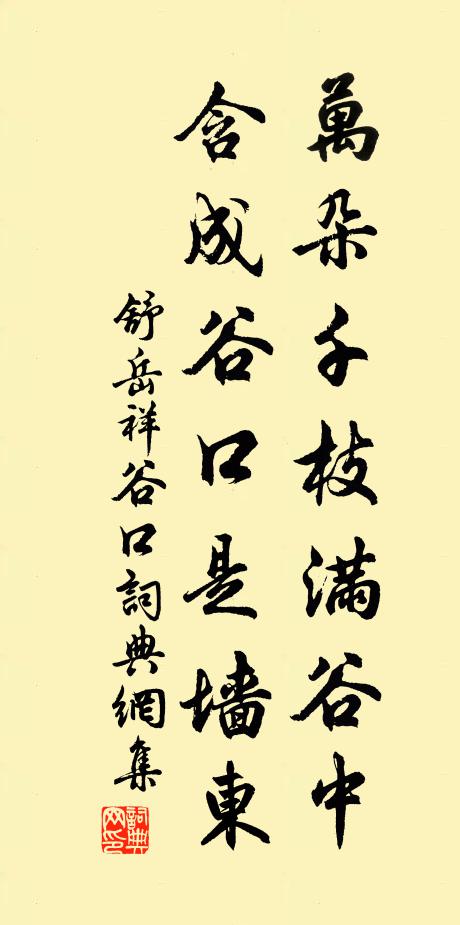 萬朵千枝滿谷中
含成谷口是墻東
舒岳祥谷口詞典網集
詞典网印